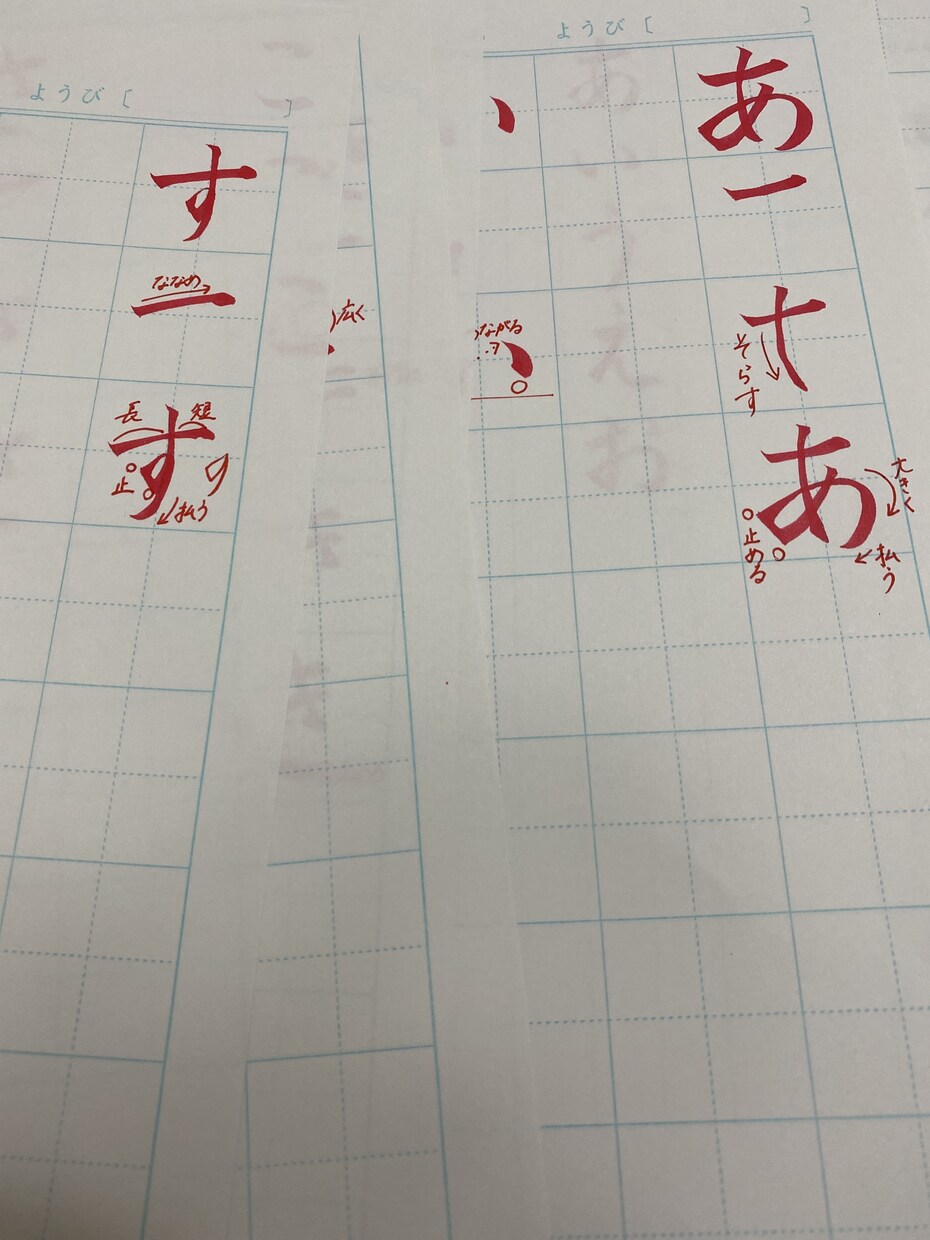 ようび [ ]
あ
一
十
そらす
あ
大きく
止める
払う
ながる
広く
ようび [ ]
す
一
ななめ
す
長
短
の
止
払う